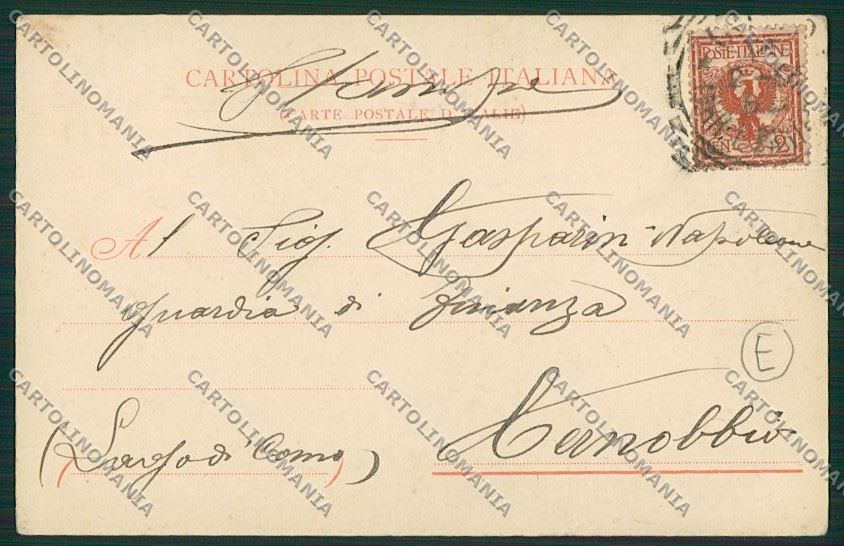 CARTOLINA POSTALE ITALIANA
(CARTE POSTALE D'ITALIE)
Stampe
POSTE ITALIANE
CENT. 2
Al Sig. Gasparin Napoleone
guardia di finanza
E
Cernobbio
(Lago di Como)
CARTOLINOMANIA